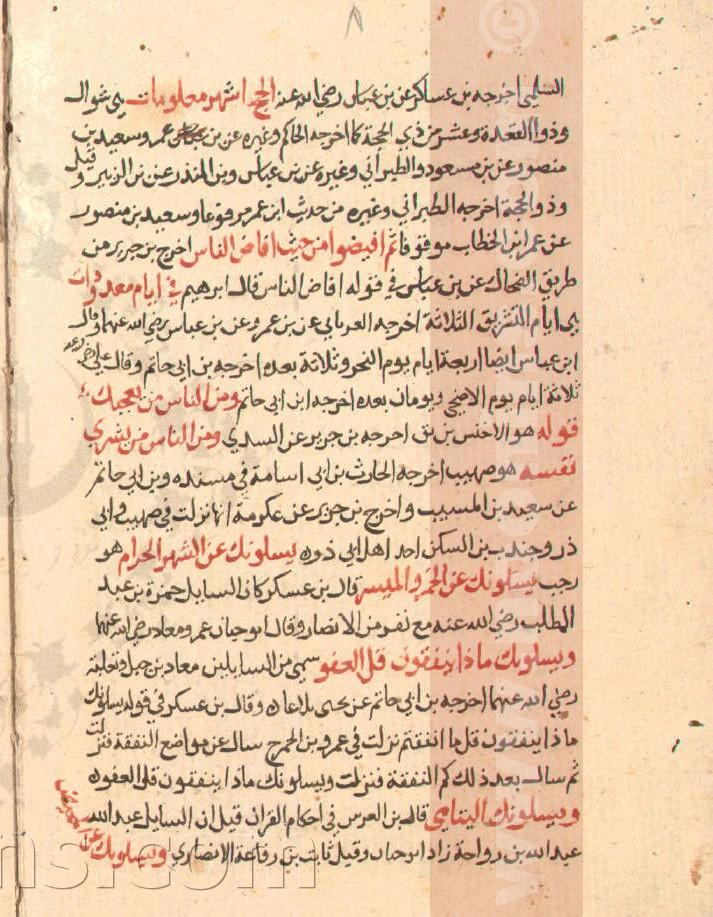 السلمي اخرجه بن عساكر عن بن عباس رضي الله عنه الحج اشهر معلومات هي شوال
وذوا القعدة وعشر من ذي الحجة كما اخرجه الحاكم وغيره عن بن عمر وسعيد بن
منصور عن بن مسعود والطبراني وغيره عن بن عباس وبن المنذر عن بن الزبير وقيل
وذو الحجة اخرجه الطبراني وغيره من حديث ابن عمر مرفوعا وسعيد بن منصور
عن عمر ابن الخطاب موقوفا ثم افيضوا من حيث افاض الناس اخرج بن جرير من
طريق الضحاك عن بن عباس في قوله افاض الناس قال ابرهيم في ايام معدودات
هي ايام التشريق الثلاثة اخرجه الفريابي عن بن عمر وعن بن عباس رضي الله عنهما وقال
ابن عباس ايضا اربعة ايام يوم النحر وثلاثة بعده اخرجه بن ابي حاتم وقال علي رضي الله عنه
ثلاثة ايام يوم الاضحي ويومان بعده اخرجه ابن ابي حاتم ومن الناس من يعجبك
قوله هو الاخنس بن شريق اخرجه بن جرير عن السدي ومن الناس من يشري
نفسه هو صهيب اخرجه الحارث بن ابي اسامة في مسنده وبن ابي حاتم
عن سعيد بن المسيب واخرج بن جرير عن عكرمة انها نزلت في صهيب وابي
ذر وجندب بن السكن احد اهل ابي ذر يسلونك عن الشهر الحرام هو
رجب يسلونك عن الخمر والميسر قال بن عسكر كان السايل حمزة بن عبد
المطلب رضي الله عنه مع نفر من الانصار وقال ابو حيان عمر ومعاد رضي الله عنهما
ويسلونك ماذا ينفقون قل العفو سمي من السايلين معاد بن جبل وثعلبة
رضي الله عنهما اخرجه بن ابي حاتم عن يحيى بلاغا وقال بن عسكر في قوله يسلونك
ماذا ينفقون قل ما انفقتم نزلت في عمرو بن الجموح سال عن مواضع النفقة فنزلت
ثم سال بعد ذلك كم النفقة فنزلت ويسلونك ماذا ينفقون قل العفو
ويسلونك اليتامي قال بن الفرس في احكام القران قيل ان السايل عبد الله
عبد الله بن رواحة زاد ابو حيان وقيل ثابت بن رفاعة الانصاري ويسلونك عن المحيض